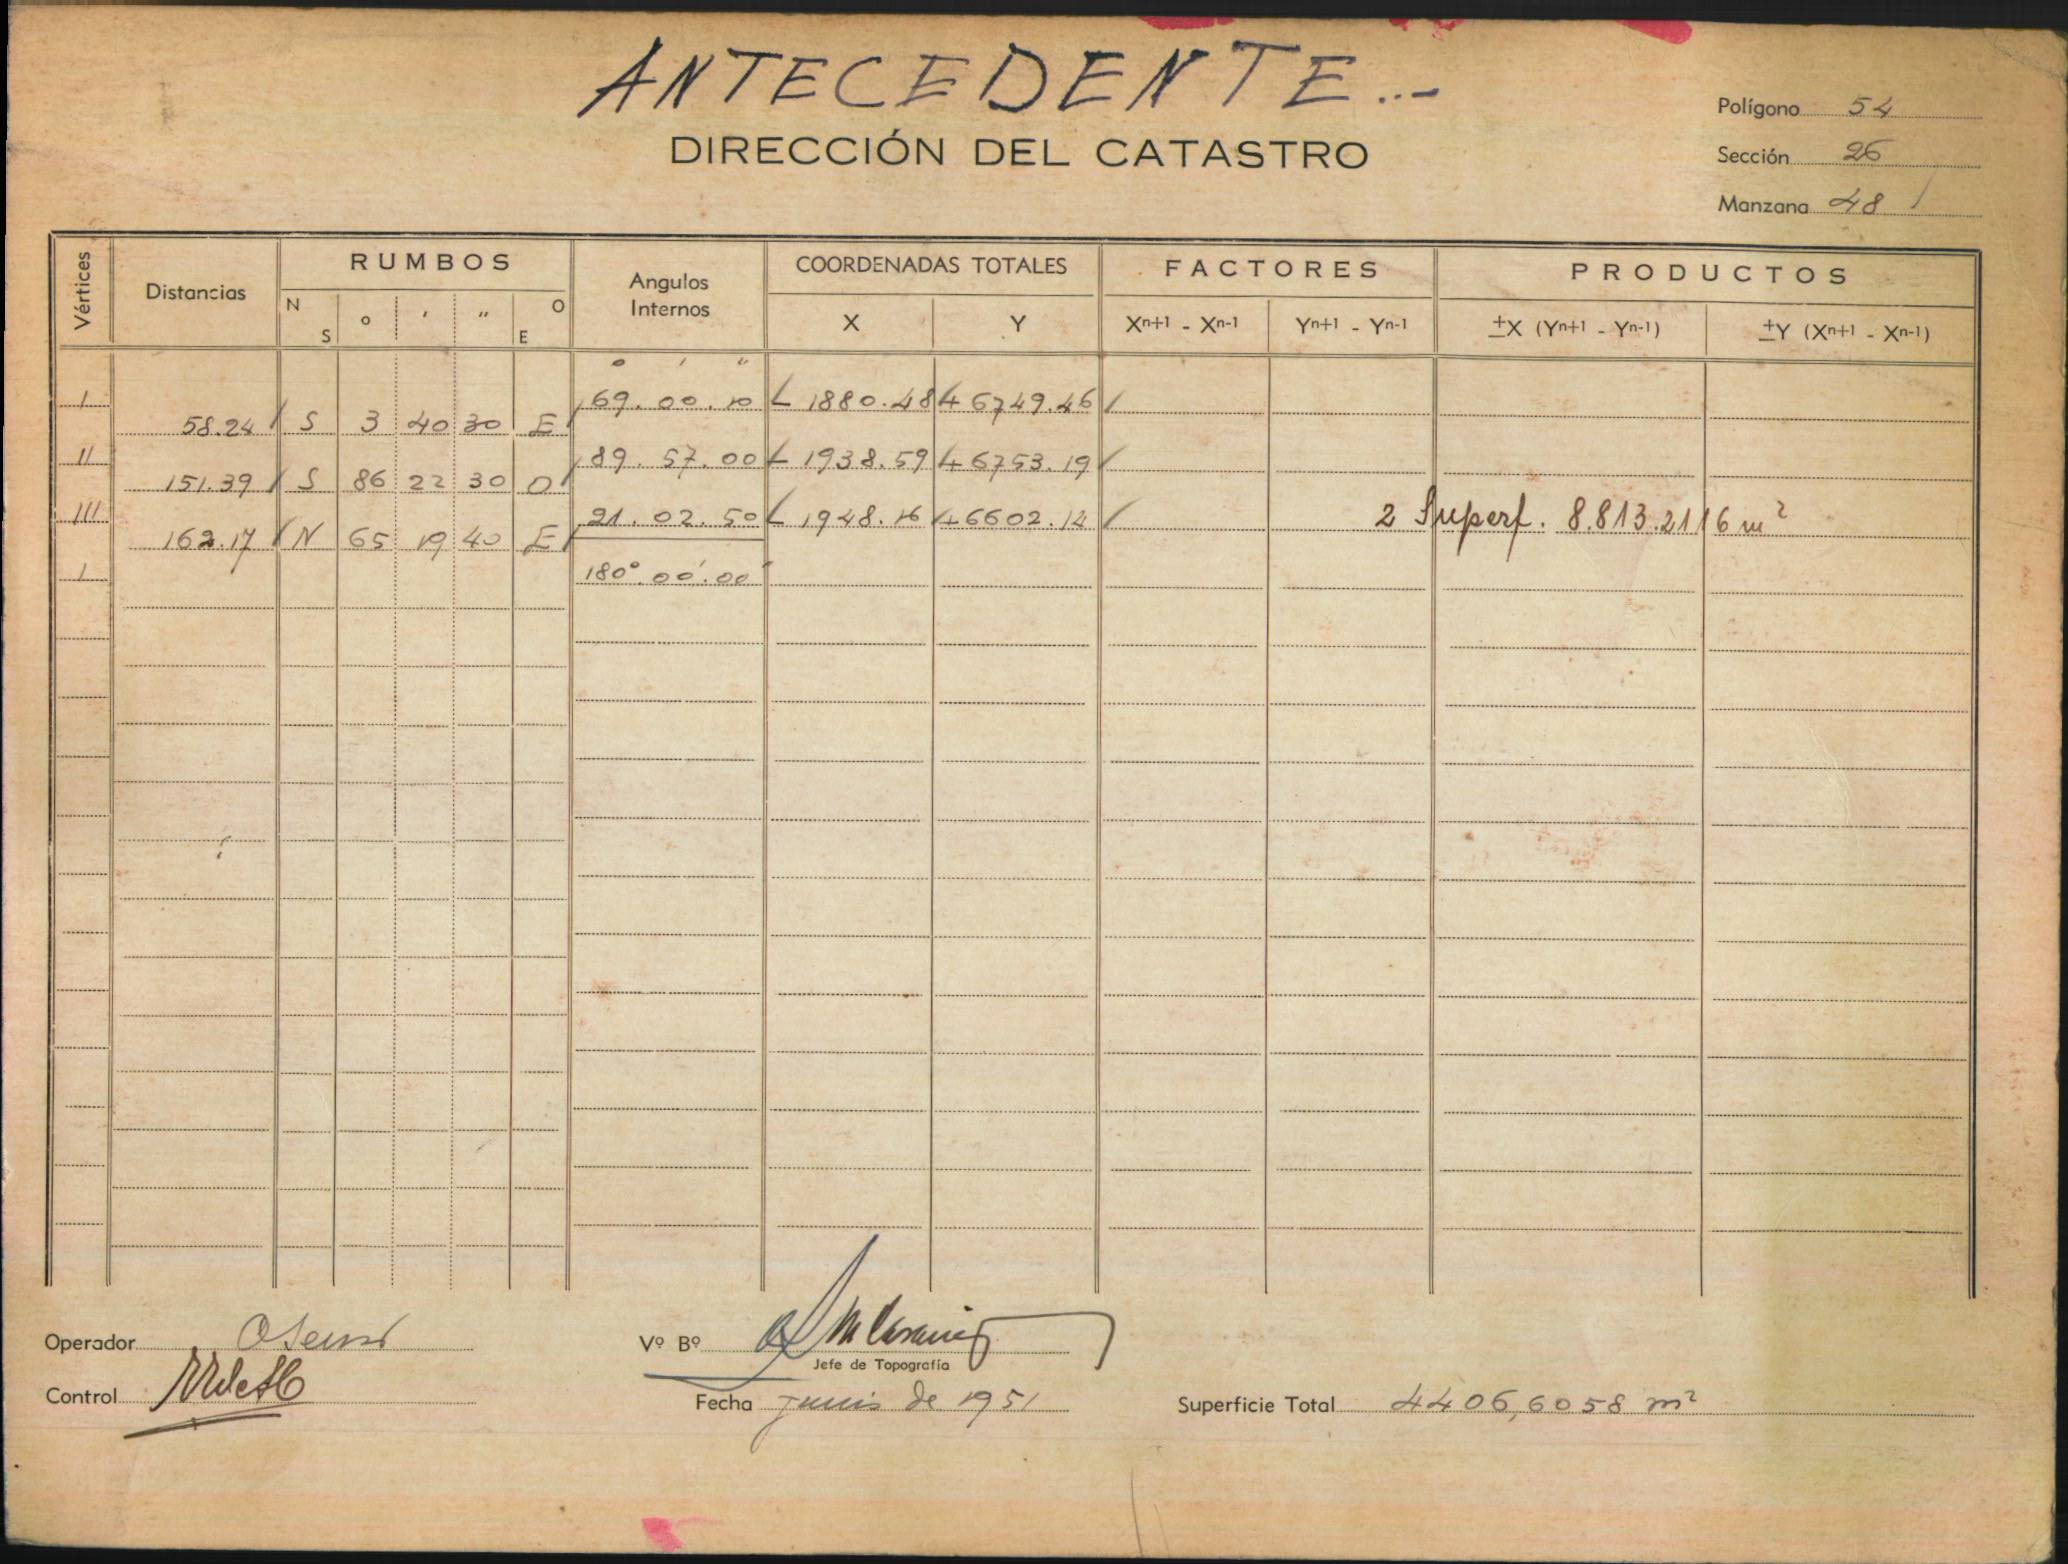 ANTECEDENTE...-
DIRECCIÓN DEL CATASTRO
Polígono 54
Sección 26
Manzana 48 /
Vértices Distancias RUMBOS Angulos Internos COORDENADAS TOTALES FACTORES PRODUCTOS
N S o ' " O E X Y Xn+1 - Xn-1 Yn+1 - Yn-1 ±X (Yn+1 - Yn-1) ±Y (Xn+1 - Xn-1)
o ' "
I 69.00.10 1880.48 + 6749.46
58.24 S 3 40 30 E
II 89.57.00 1938.59 + 6753.19
151.39 S 86 22 30 O
III 21.02.50 1948.16 + 6602.12 2 Superf. 8.813.2116 m²
162.17 N 65 19 40 E
I 180°.00'.00"
Operador
Vº Bº
Jefe de Topografía
Control
Fecha junio de 1951
Superficie Total 4406,6058 m²